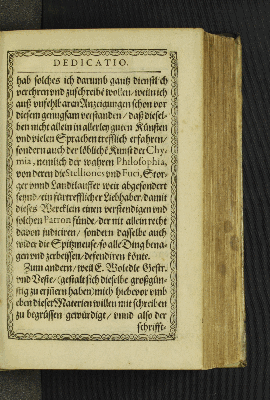 DEDICATIO.
hab solches ich darumb gantz dienstlich
verehren vnd zuschreibē wollen/ weiln ich
auß vnfehlbaren Anzeigungen schon vor
diesem genugsam verstanden/ daß diesel-
ben nicht allein in allerley guten Künsten
vnd vielen Sprachen trefflich erfahren/
sondern auch der löbliche Kunst der Chy-
mia, nemlich der wahren Philosophia,
von deren die Stelliones vnd Fuci, Stor-
ger vnnd Landtlauffer weit abgesondert
seynd/ ein fürtrefflicher Liebhaber/ damit
dieses Wercklein einen verstendigen vnd
solchen Patron fünde/ der nit allein recht
davon judiciren/ sondern dasselbe auch
wider die Spitzmeuse/ so alle Ding bena-
gen vnd zerbeissen/ defendiren könte.
Zum andern/ weil E. Woledle Gestr.
vnd Veste/ (gestalt sich dieselbe großgün-
stig zu erjñern haben) mich hiebevor vmb
eben dieser Materien willen mit schreiben
zu begrüssen gewürdige/ vnnd also der
schrifft-